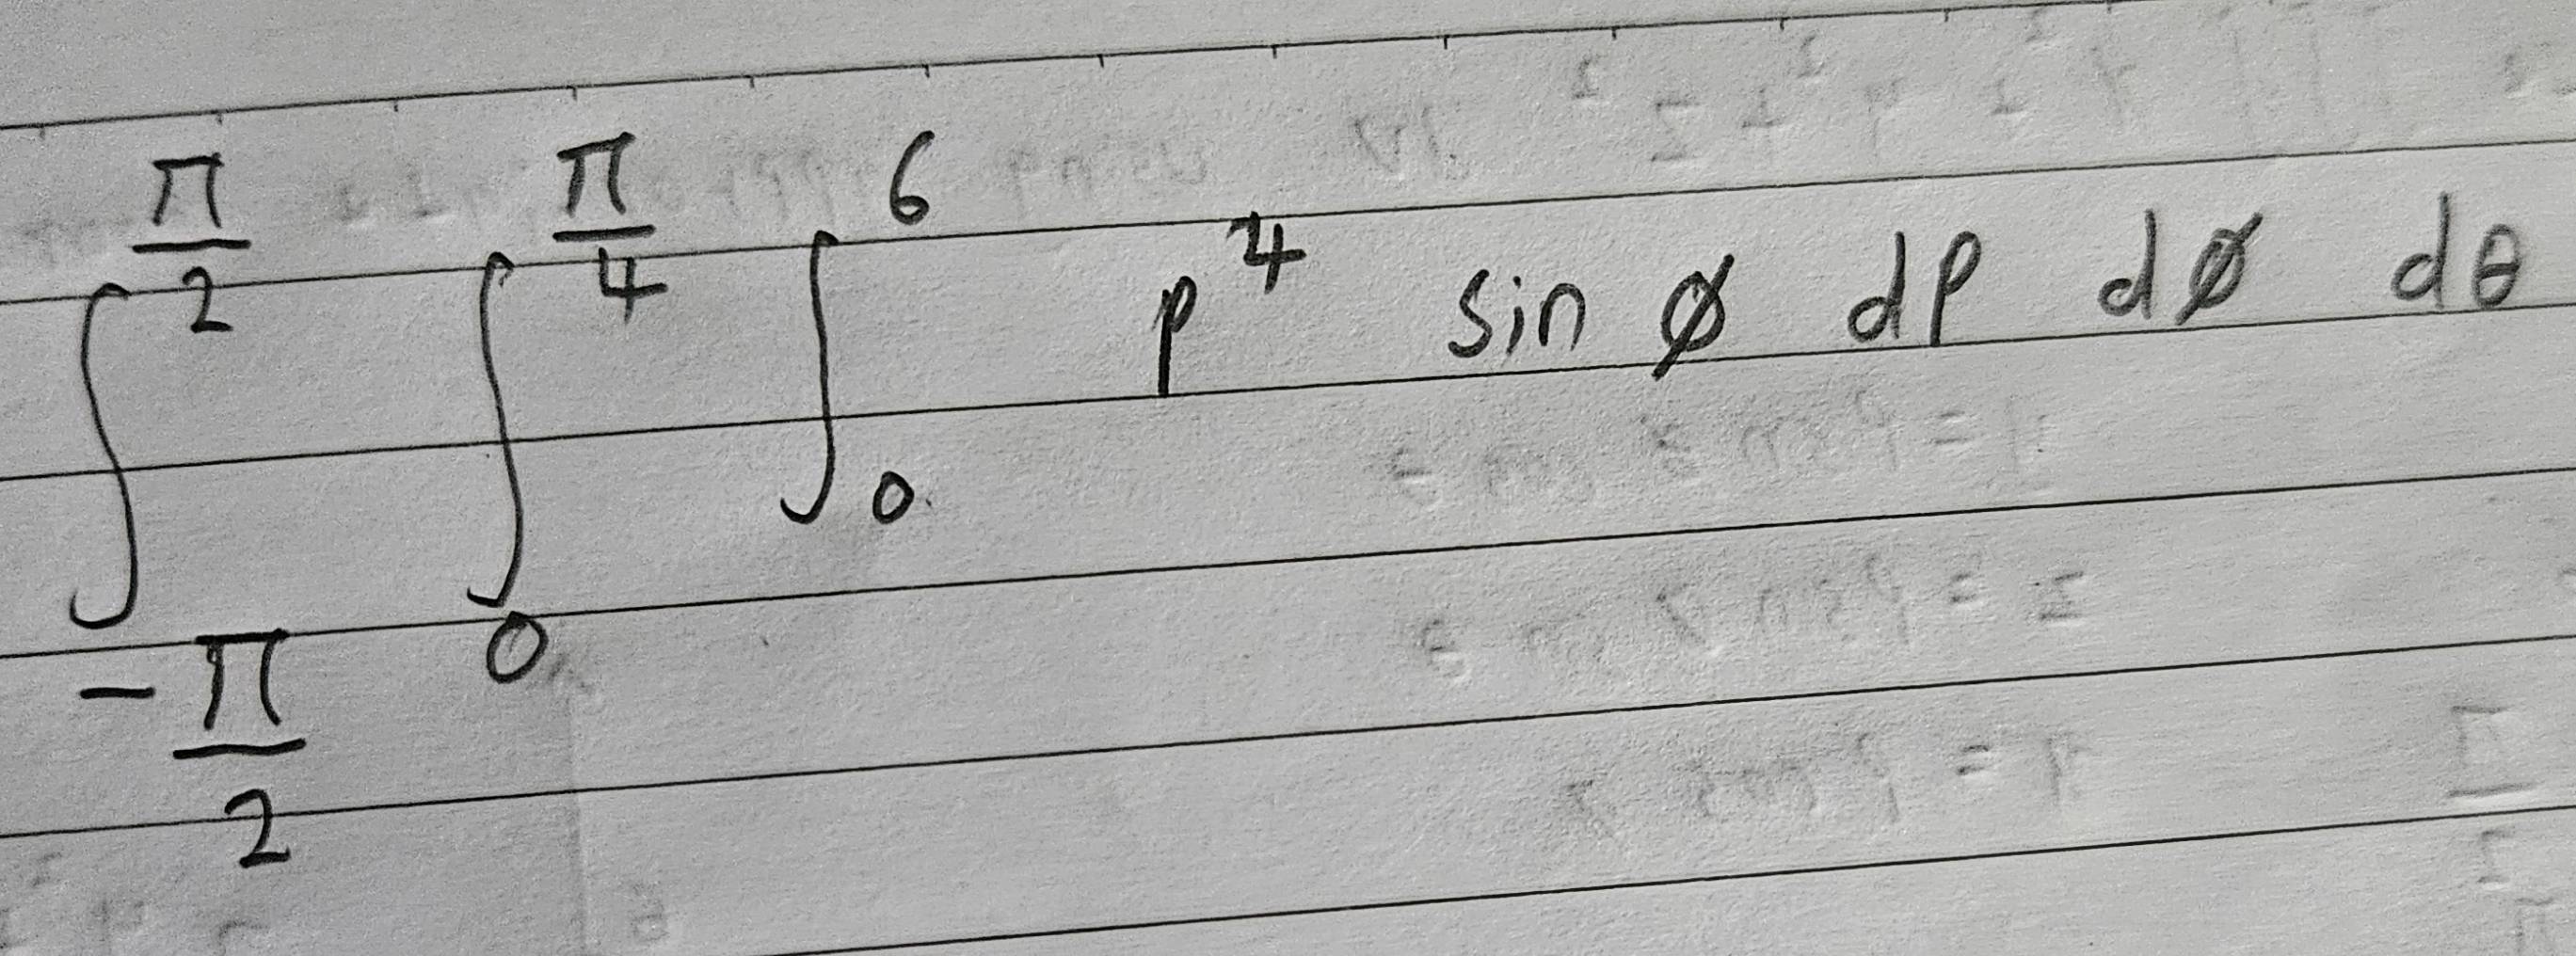 ∫_{-π/2}^{π/2} ∫_0^{π/4} ∫_0^6 ρ^4 sin ø dρ dø dθ